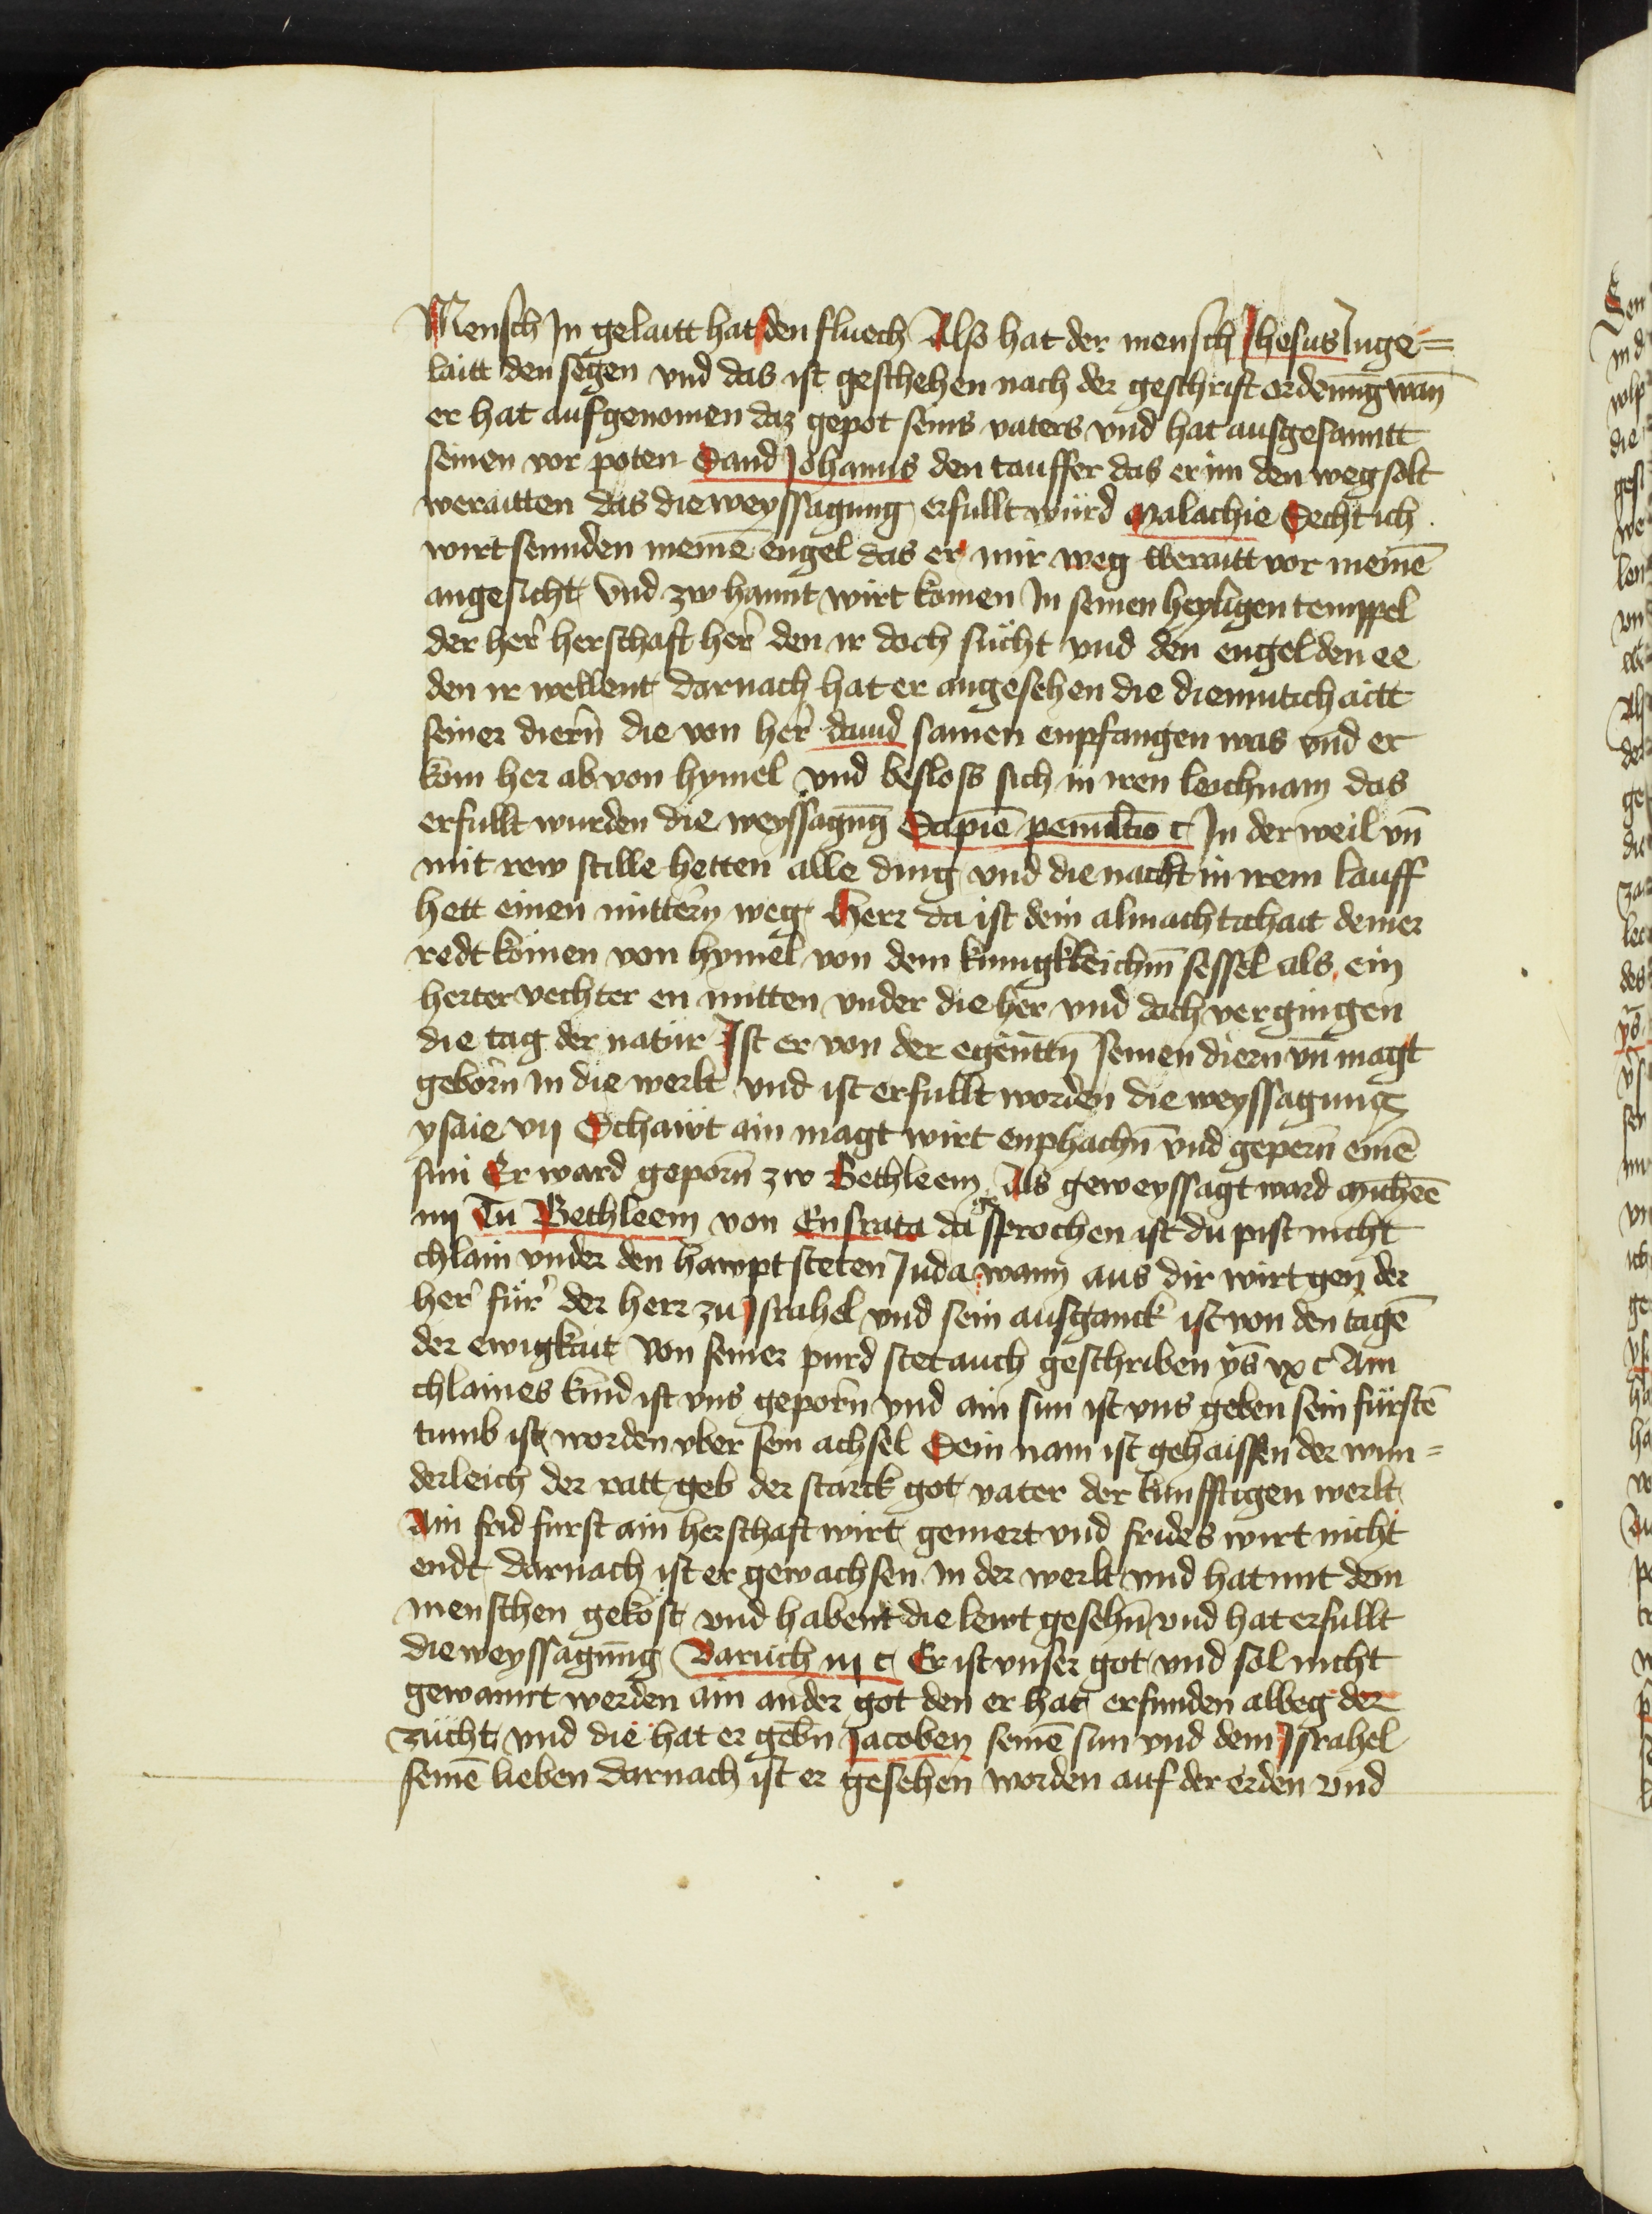 Mensch In gelaitt hat den fluech Also hat der mensch Jhesus Inge=
laitt den segen vnd das ist geschehen nach der geschrift ordenūg wan̄
er hat aufgenomen daz gepot seins vaters vnd hat ausgesanntt
seinen vor poten Sand Johanns den tauffer das er im den weg solt
weraitten das die weyssagung erfullt wurd Malachie Secht ich
wirt sennden meinē engel das er mir weg weraitt vor meinē
angesicht Vnd zw hannt wirt komen In seinen heyligen temppel
der her̄ herschaft her̄ den ir doch sücht vnd den engel den ee
den ir wellent darnach hat er angesehen die diemutichaitt
seiner diern̄ die von her̄ dauid samen enpfangen was vnd er
kom her ab von hymel vnd besloss sich in iren leichnam das
erfullt wurden die weyssagūg Sapiē penultīo c In der weil vn̄
mit rew stille hetten alle ding vnd die nacht in irem lauff
hett einen mittern weg Herr da ist dein almachtichait deiner
redt komen von hymel von dem kunigkleichn̄ sessel als ein
herter vechter en mitten vnder die her vnd doch vergingen
die tag der natur Ist er von der egenn̄ttn̄ seinen diern vn̄ magt
geborn in die werlt vnd ist erfullt worden die weyssagung
ysaie vij Schawt ain magt wirt enphachn̄ vnd gepern̄ einē
sun Er ward geporn̄ zw Bethleem Als geweyssagt ward Micheē
iiij Tu Bethleem von Ensrata da gesprochen ist du pist nicht
chlain vnder den hawpt steten Juda wann aus dir wirt gen der
her̄ für̄ der herr zu Israhel vnd sein ausganck ist von den tagē
der ewigkait Von seiner purd stet auch geschriben ys̄ ix c Ain
chlaines kind ist vns geporn̄ vnd ain sun ist vns geben sein fürstē
tumb ist worden vber sein achsel Sein nam ist gehaissen der wun=
derleich der ratt geb der starck got vater der kunfftigen werlt
Ain frid furst ain herschaft wirt gemert vnd frides wirt nicht
endt darnach ist er gewachsen in der werlt vnd hat mit dem
menschen gekost vnd habent die lewt gesehn̄ vnd hat erfullt
die weyssagūng Baruch iij c Er ist vnser got vnd sol nicht
gewannt werden ain ander got den er hat erfunden allweg der
zücht vnd die hat er gebn̄ Jacoben seinē sun vnd dem Israhel
seinē lieben darnach ist er gesehen worden auf der erden vnd